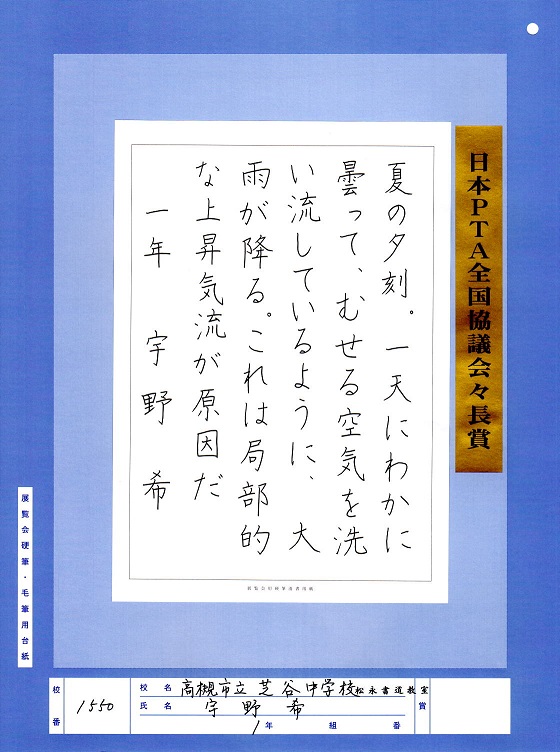 日本PTA全国協議会々長賞
夏の夕刻。一天にわかに
曇って、むせる空気を洗
い流しているように、大
雨が降る。これは局部的
な上昇気流が原因だ
一年 宇野希
展覧会硬筆・毛筆用台紙
校番 1550
校名 高槻市立芝谷中学校 松永書道教室
氏名 宇野希
1年 組 番
賞